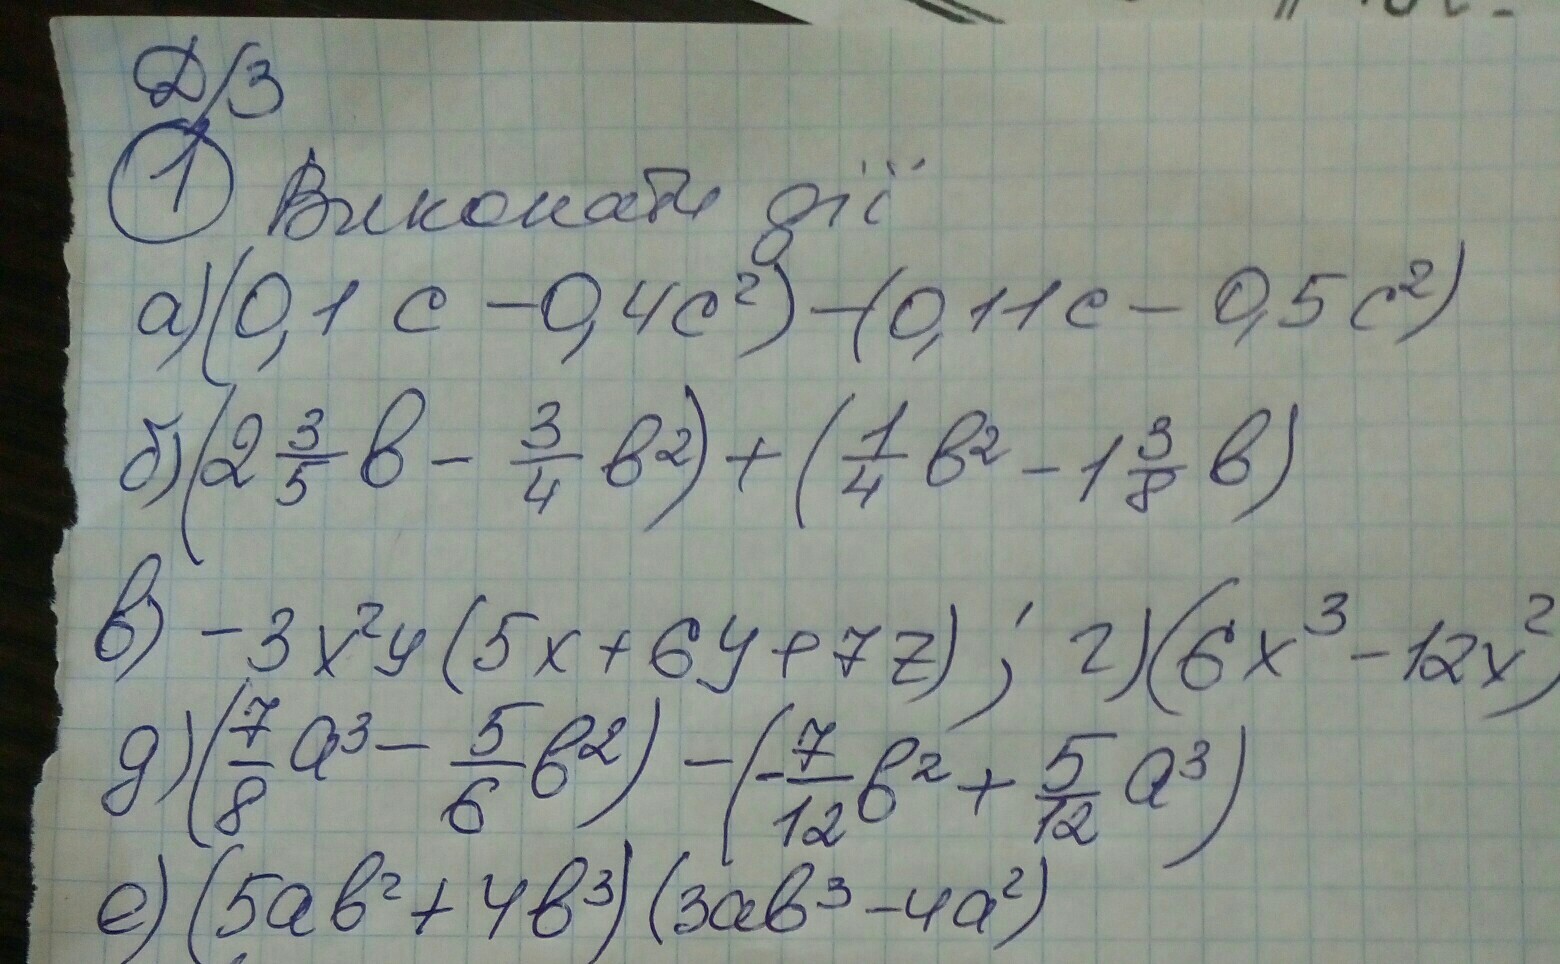 Д/З
1 Виконати дії
а) (0,1 c - 0,4c²) - (0,11c - 0,5c²)
б) (2 3/5 b - 3/4 b²) + (1/4 b² - 1 3/8 b)
в) -3x²y (5x + 6y + 7z); г) (6x³ - 12x²)
д) (7/8 a³ - 5/6 b²) - (-7/12 b² + 5/12 a³)
е) (5ab² + 4b³) (3ab³ - 4a²)